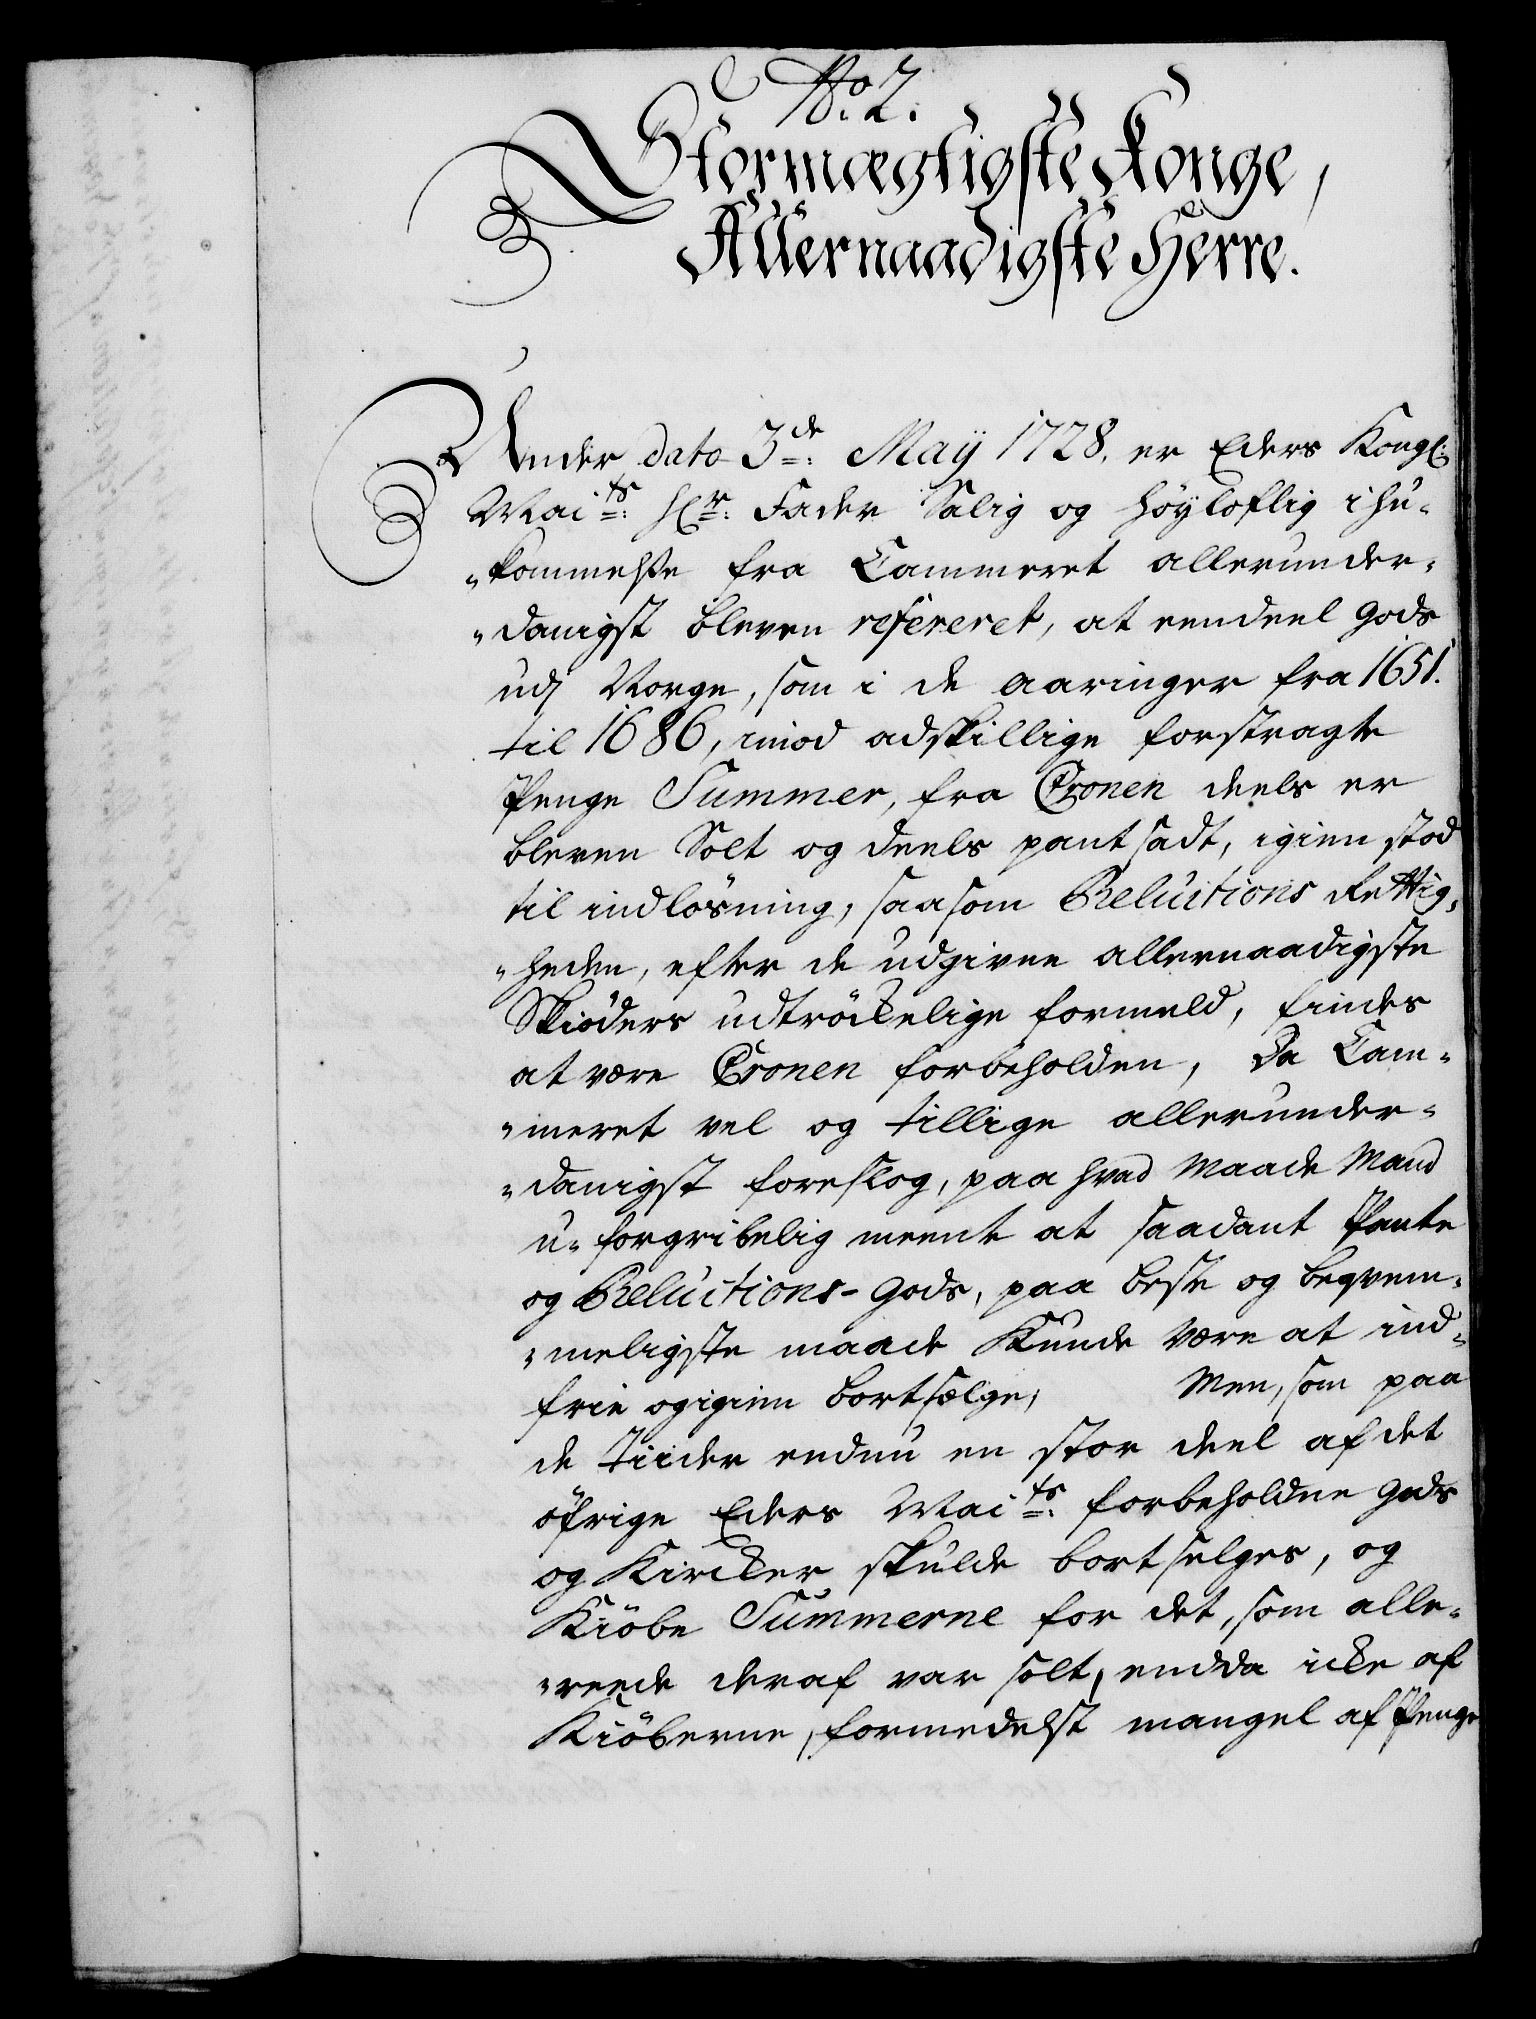 No. 2.
Stormægtigste Konge,
Allernaadigste Herre.
Under dato 3de: Maÿ 1728. er Eders Kongl:
Maits: Hr: Fader Salig og höyloflig ihu-
"kommelse fra Cammeret allerunder-
"danigst bleven refereret, at eendeel Gods
udj Norge, som i de aaringer fra 1651.
til 1686, imod adskillige forstragte
Penge Summer, fra Cronen deels er
bleven Solt og deels pantsadt, igien stod
til indlösning, saasom Reluitions Rettig-
"heden, efter de udgivne allernaadigste
Skiöders udtröckelige formeld, findes
at være Cronen forbeholden, Da Cam-
"meret vel og tillige allerunder-
"danigst foreslog, paa hvad Maade Mand
u-forgribelig meente at saadant Pante
og Reluitions-Gods, paa beste og beqvem-
"meligste maade Kunde være at ind-
frie og igien bortsælge; Men, som paa
de Tiider endnu en stor deel af det
öfrige Eders Maits: forbeholdne Gods
og Kircker skulde bortselges, og
Kiöbe Summerne for det, som alle-
"reede deraf var solt, endda icke af
Kiöberne, formedelst mangel af Penge